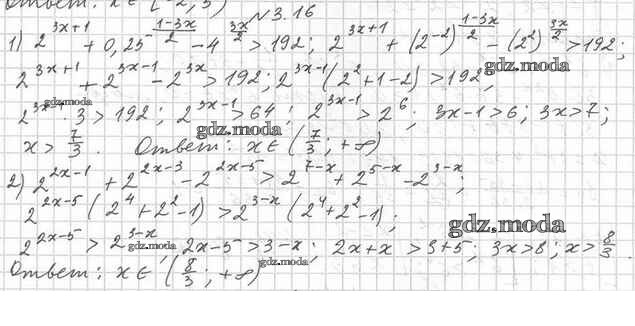 Ответ: x ∈ (-2; 3)
№3.16
1) 2^{3x+1} + 0,25^{-\frac{1-3x}{2}} - 4^{\frac{3x}{2}} > 192; 2^{3x+1} + (2^{-2})^{\frac{1-3x}{2}} - (2^2)^{\frac{3x}{2}} > 192;
gdz.moda
2^{3x+1} + 2^{3x-1} - 2^{3x} > 192; 2^{3x-1}(2^2+1-2) > 192;
gdz.moda
2^{3x-1} 3 > 192; 2^{3x-1} > 64; 2^{3x-1} > 2^6; 3x-1 > 6; 3x > 7;
gdz.moda
x > \frac{7}{3}. Ответ: x ∈ (\frac{7}{3}; +∞)
2) 2^{2x-1} + 2^{2x-3} - 2^{2x-5} > 2^{7-x} + 2^{5-x} - 2^{3-x};
2^{2x-5}(2^4+2^2-1) > 2^{3-x}(2^4+2^2-1);
gdz.moda
2^{2x-5} > 2^{3-x}; 2x-5 > 3-x; 2x+x > 3+5; 3x > 8; x > \frac{8}{3}.
gdz.moda
Ответ: x ∈ (\frac{8}{3}; +∞)
gdz.moda